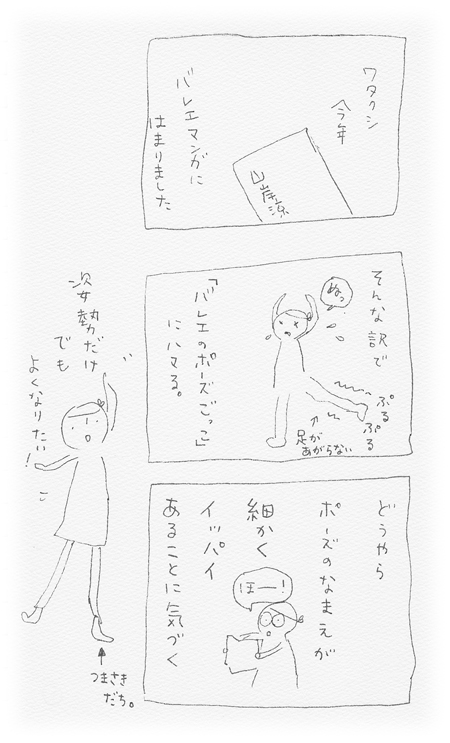 ワタクシ
今年
バレエマンガに
はまりました
山岸涼
そんな訳で
ぬっ
ぷる
ぷる
足が
あがらない
「バレエのポーズごっこ」
にハマる。
どうやら
ポーズのなまえが
細かく
イッパイ
あることに気づく
ほー!
姿勢だけ
でも
よくなりたい!
つまさき
だち。